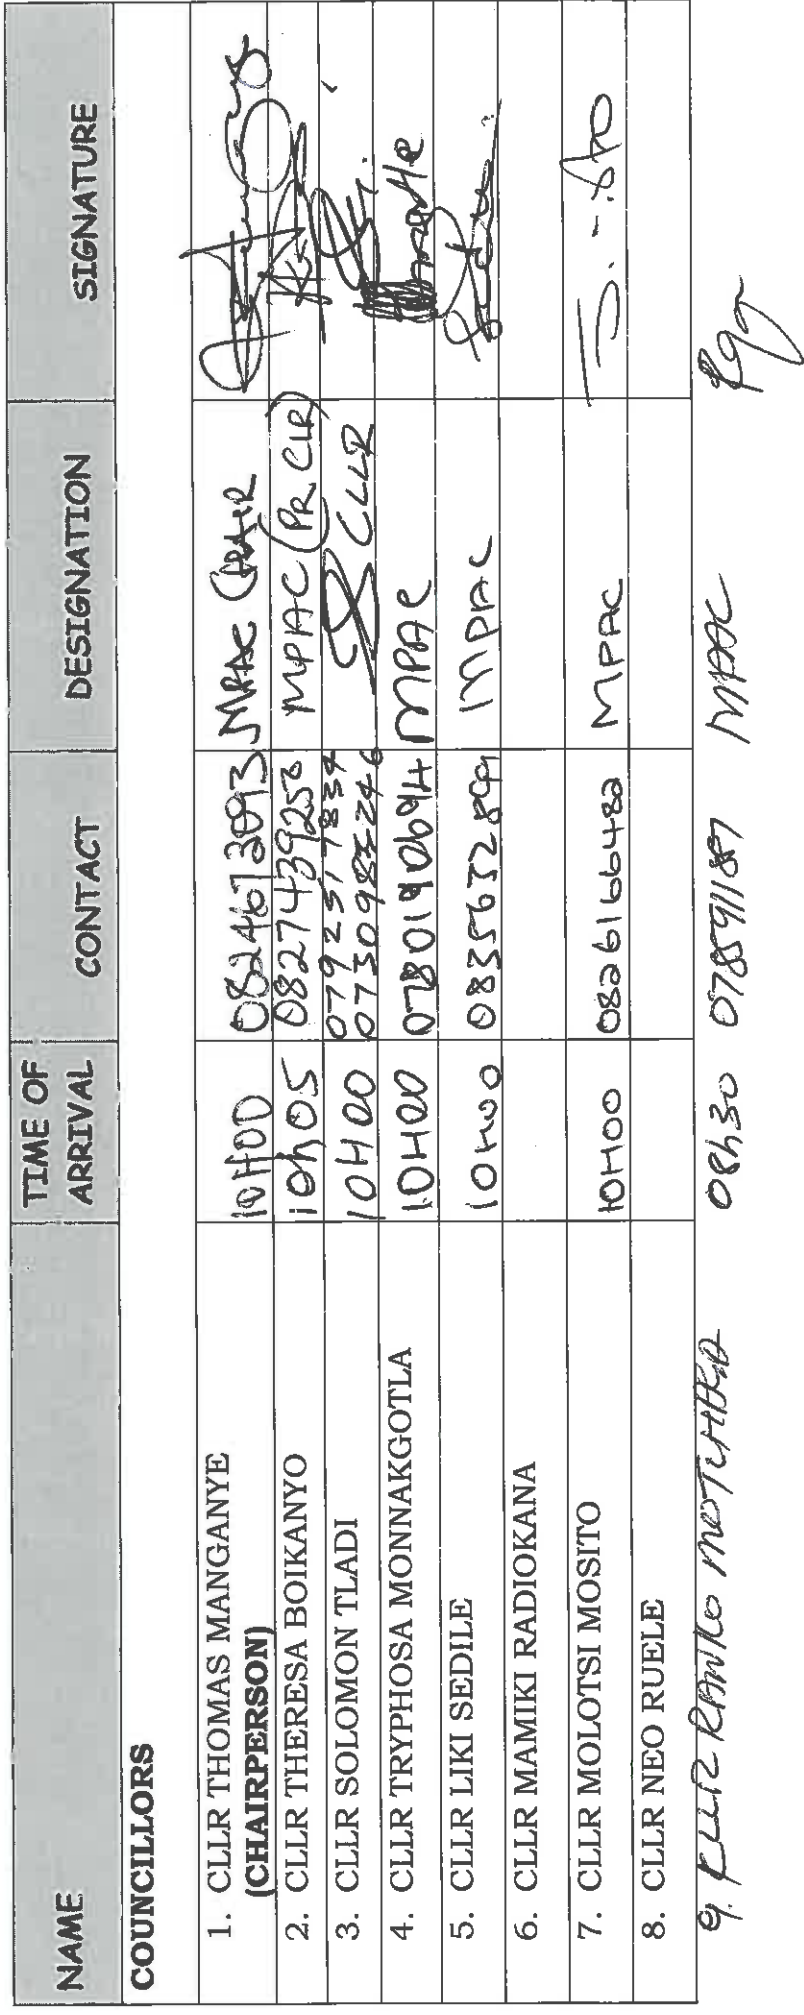 NAME TIME OF ARRIVAL CONTACT DESIGNATION SIGNATURE
COUNCILLORS
1. CLLR THOMAS MANGANYE (CHAIRPERSON) 10H00 0824673093 MPAC CHAIR
2. CLLR THERESA BOIKANYO 10h05 0827439253 MPAC (PR CLR)
3. CLLR SOLOMON TLADI 10H00 CLLR
4. CLLR TRYPHOSA MONNAKGOTLA 10H00 MPAC
5. CLLR LIKI SEDILE 10H00 MPAC
6. CLLR MAMIKI RADIOKANA
7. CLLR MOLOTSI MOSITO 10H00 0826166482 MPAC
8. CLLR NEO RUELE
9. CLLR 08h30 MPAC